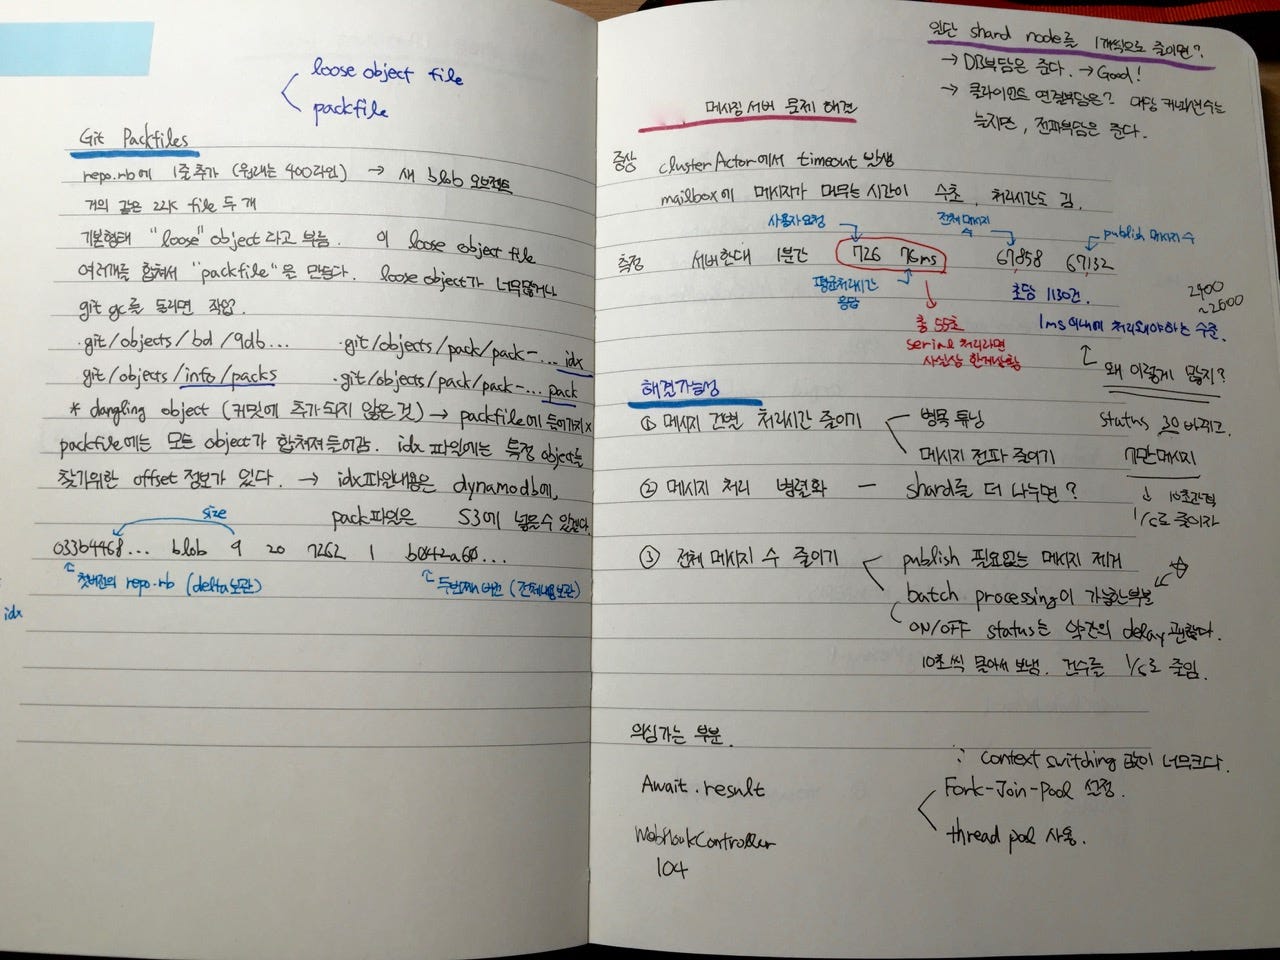 loose object file
packfile
Git Packfiles
repo.rb에 1줄추가 (원래는 400라인) → 새 blob 오브젝트
거의 같은 22K file 두 개
기본형태 "loose" object 라고 부름. 이 loose object file
여러개를 합쳐서 "packfile"을 만든다. loose object가 너무많거나
git gc를 돌리면 작업.
.git/objects/bd/9db... .git/objects/pack/pack-... idx
git/objects/info/packs .git/objects/pack/pack-... pack
* dangling object (커밋에 추가되지 않은것) → packfile에 들어가지 x
packfile에는 모든 object가 합쳐져들어감. idx 파일에는 특정 object를
찾기위한 offset 정보가 있다. → idx파일내용은 dynamodb에,
pack파일은 S3에 넣을수 있겠다.
size
033b4468... blob 9 20 7262 1 b042a60...
첫버전의 repo.rb (delta보관) 두번째 버전 (전체내용보관)
idx
일단 shard node를 1개씩으로 줄이면?
→ DB부담은 준다. → Good!
→ 클라이언트 연결부담은? 대당 커넥션수는
늘지만, 전파부담은 준다.
메시징서버 문제 해결
증상 clusterActor에서 timeout 발생
mailbox에 메시지가 머무는 시간이 수초, 처리시간도 김.
사용자요청 전체메시지 수 publish 메시지 수
측정 서버한대 1분간 726 76ms 67858 67132
평균처리시간 응답
초당 1130건.
2400
~2600
총 55초
serial 처리라면
사실상 한계상황
1ms 이내에 처리돼야하는 수준.
왜 이렇게 많지?
status 30 바뀌고.
7만메시지
↓ 10초간격
1/5로 줄이자
해결가능성
① 메시지 건별 처리시간 줄이기
병목 튜닝
메시지 전파 줄이기
② 메시지 처리 병렬화 — shard를 더 나누면?
③ 전체 메시지 수 줄이기
publish 필요없는 메시지 제거
batch processing이 가능한부분 ☆
ON/OFF status는 약간의 delay 괜찮다.
10초씩 몰아서 보냄. 건수를 1/5로 줄임.
의심가는 부분.
∵ context switching 값이 너무크다.
Await.result
Fork-Join-Pool 설정.
thread pool 사용.
WebHookController
104